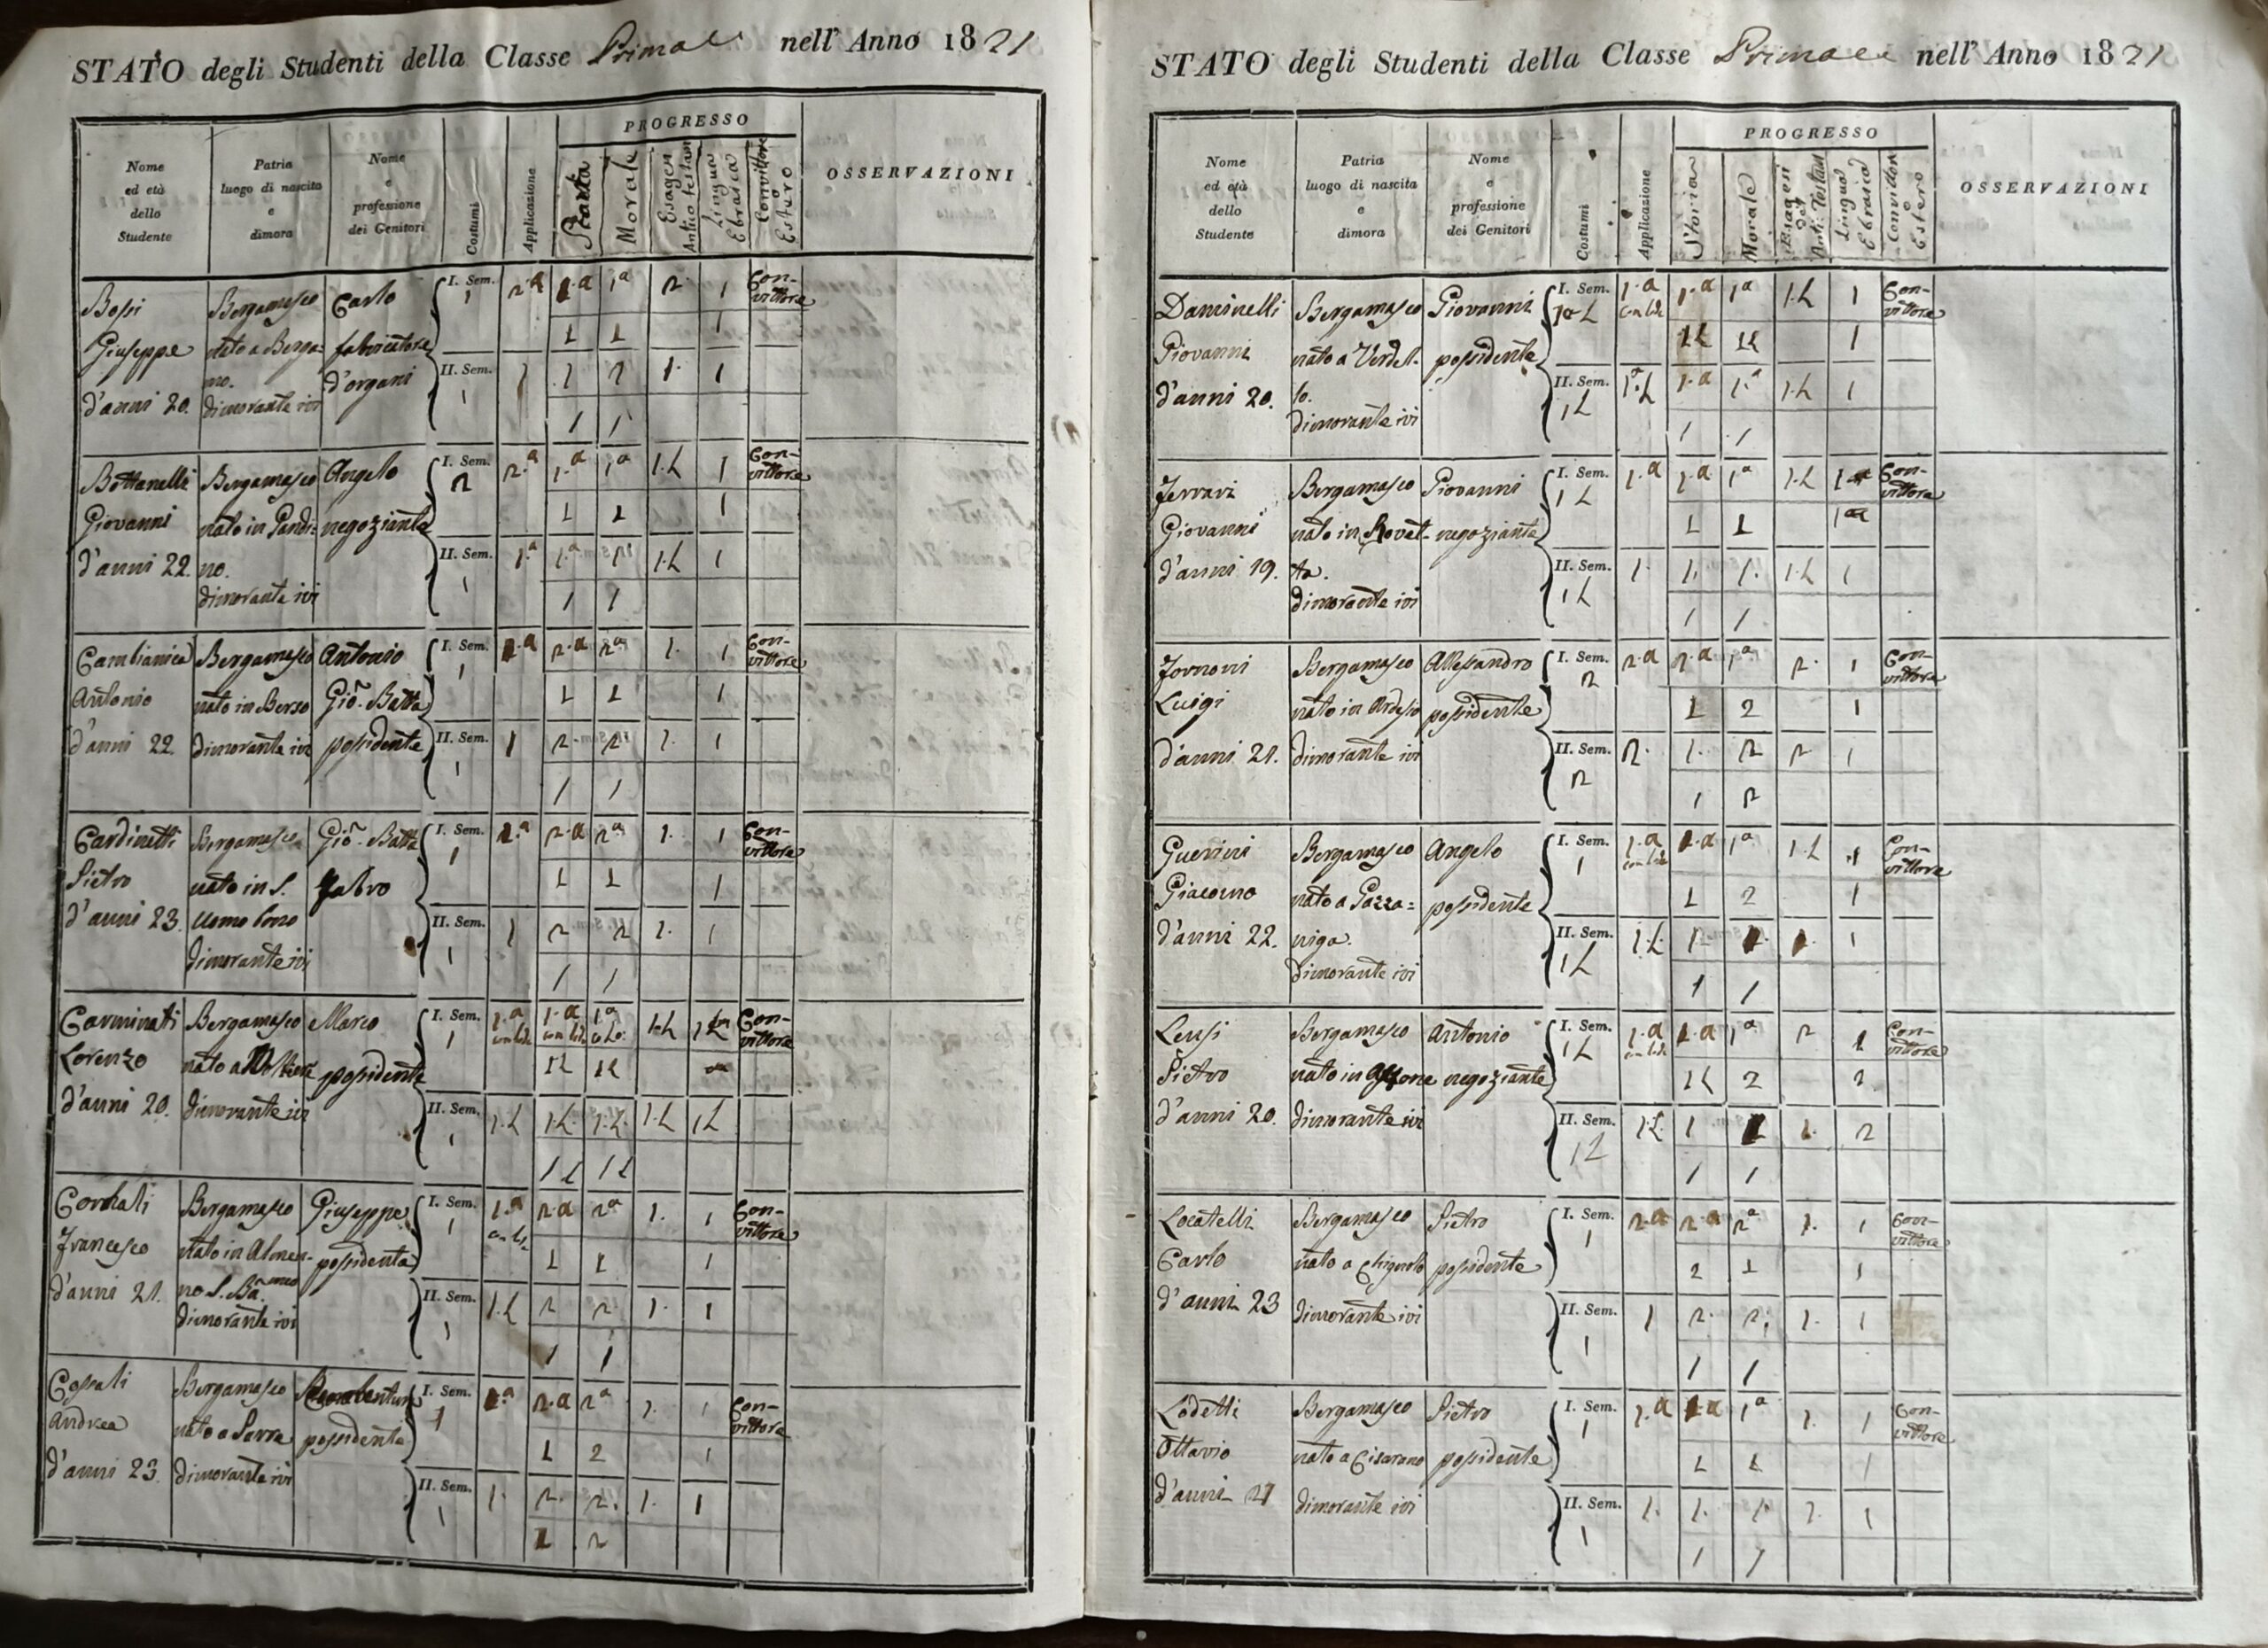 STATO degli Studenti della Classe Prima nell' Anno 1821
PROGRESSO
Nome ed età dello Studente
Patria luogo di nascita e dimora
Nome e professione dei Genitori
Costumi
Applicazione
Morale
Esegesi Antico Testam
Lingua Ebraica
Convittore o Estero
OSSERVAZIONI
Bossi Giuseppe d'anni 20.
Bergamasco nato a Bergamo. dimorante ivi
Carlo fabricatore d'organi
I. Sem. 1 2.a 1.a 1a 2. 1 Convittore
1 1 1
II. Sem. 1 1 1 1 1. 1
1 1
Bottanelli Giovanni d'anni 22.
Bergamasco nato in Pandino. dimorante ivi
Angelo negoziante
I. Sem. 2 2.a 1.a 1a 1.L 1 Convittore
1 1 1
II. Sem. 1 1.a 1.a 1 1.L 1
1 1
Cambianica Antonio d'anni 22.
Bergamasco nato in Berzo dimorante ivi
Antonio Gio. Batta possidente
I. Sem. 1 2.a 2a 1. 1 Convittore
1 1 1
II. Sem. 1 1 2 2 1. 1
1 1
Cardinetti Pietro d'anni 23.
Bergamasco nato in S. dimorante ivi
Gio. Batta Fabro
I. Sem. 1 2.a 2a 1. 1 Convittore
1 1 1
II. Sem. 1 1 2 2 1. 1
1 1
Carminati Lorenzo d'anni 20.
Bergamasco nato a dimorante ivi
Marco possidente
I. Sem. 1 1.a con lode 1.a con lode 1a 1.L 1L Convittore
1L 1L
II. Sem. 1 1.L 1.L. 1.L. 1.L 1L
1L 1L
Francesco d'anni 21.
Bergamasco nato in Almenno S. dimorante ivi
Giuseppe possidente
I. Sem. 1 1.a con lode 2.a 2a 1. 1 Convittore
1 1 1
II. Sem. 1 1.L 2 2 1. 1
1 1
Cossali Andrea d'anni 23.
Bergamasco nato a Serra dimorante ivi
possidente
I. Sem. 1 2.a 2a 1. 1 Convittore
1 2 1
II. Sem. 1 1. 2. 2. 1. 1
1 2
STATO degli Studenti della Classe Prima nell' Anno 1821
PROGRESSO
Nome ed età dello Studente
Patria luogo di nascita e dimora
Nome e professione dei Genitori
Costumi
Applicazione
Storia
Morale
Esegesi del Ant: Testam
Lingua Ebraica
Convittore o Estero
OSSERVAZIONI
Daminelli Giovanni d'anni 20.
Bergamasco nato a Verdello. dimorante ivi
Giovanni possidente
I. Sem. 1.a con lode 1.a 1a 1.L 1 Convittore
1L 1L 1
II. Sem. 1L 1.L 1.a 1.a 1.L 1
1 1
Ferrari Giovanni d'anni 19.
Bergamasco nato in Rovetta. dimorante ivi
Giovanni negoziante
I. Sem. 1L 1.a 1.a 1a 1.L Convittore
1 1
II. Sem. 1L 1. 1. 1. 1.L 1
1 1
Fornoni Luigi d'anni 21.
Bergamasco nato in Ardesio dimorante ivi
Alessandro possidente
I. Sem. 2 2.a 1a 2. 1 Convittore
1 2 1
II. Sem. 2 2. 1. 2 2 1
1 2
Guerini Giacomo d'anni 22.
Bergamasco nato a Gazzaniga. dimorante ivi
Angelo possidente
I. Sem. 1 1.a con lode 1.a 1a 1.L 1 Convittore
1 2 1
II. Sem. 1L 1.L. 1 1
1 1
Pietro d'anni 20.
Bergamasco nato in Azzone dimorante ivi
Antonio negoziante
I. Sem. 1L 1.a con lode 1.a 1a 2 Convittore
1L 2 2
II. Sem. 1L 1.L. 1 1. 2
1 1
Locatelli Carlo d'anni 23
Bergamasco nato a Chignolo dimorante ivi
Pietro possidente
I. Sem. 1 2.a 2.a 2a 1. 1 Convittore
2 1 1
II. Sem. 1 1 2. 2. 1. 1
1 1
Lodetti Ottavio d'anni 21
Bergamasco nato a Cisarano dimorante ivi
Pietro possidente
I. Sem. 1 1.a 1.a 1a 1. 1 Convittore
1 1 1
II. Sem. 1 1. 1. 1. 1. 1
1 1